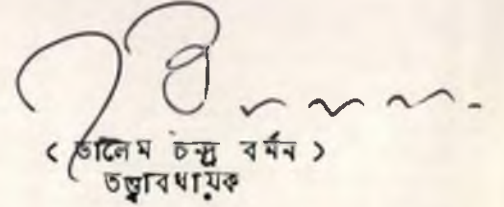 ( ডালেম চন্দ্র বর্মন )
তত্ত্বাবধায়ক